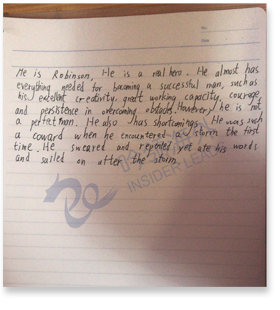 No.
Date
He is Robinson, He is a real hero. He almost has
everything needed for becoming a successful man, such as
his excellent creativity, great working capacity, courage,
and persistence in overcoming obstacles. However, he is not
a perfect man. He also has shortcomings. He was such
a coward when he encountered a storm the first
time. He sweared and repented yet ate his words
and sailed on after the storm.
INSIDER LEA